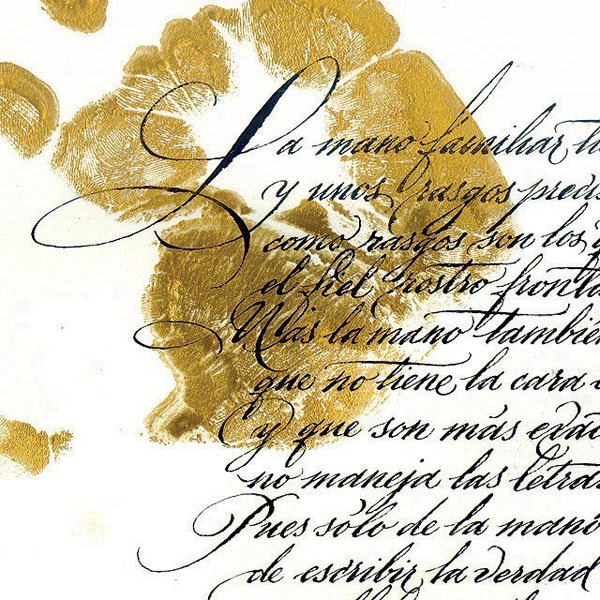 La mano familiar t
y unos rasgos precis
como rasgos son los
el fiel rostro fronta
Mas la mano tambié
que no tiene la cara
y que son más exac
no maneja las letra
Pues sólo de la mano
de escribir la verdad